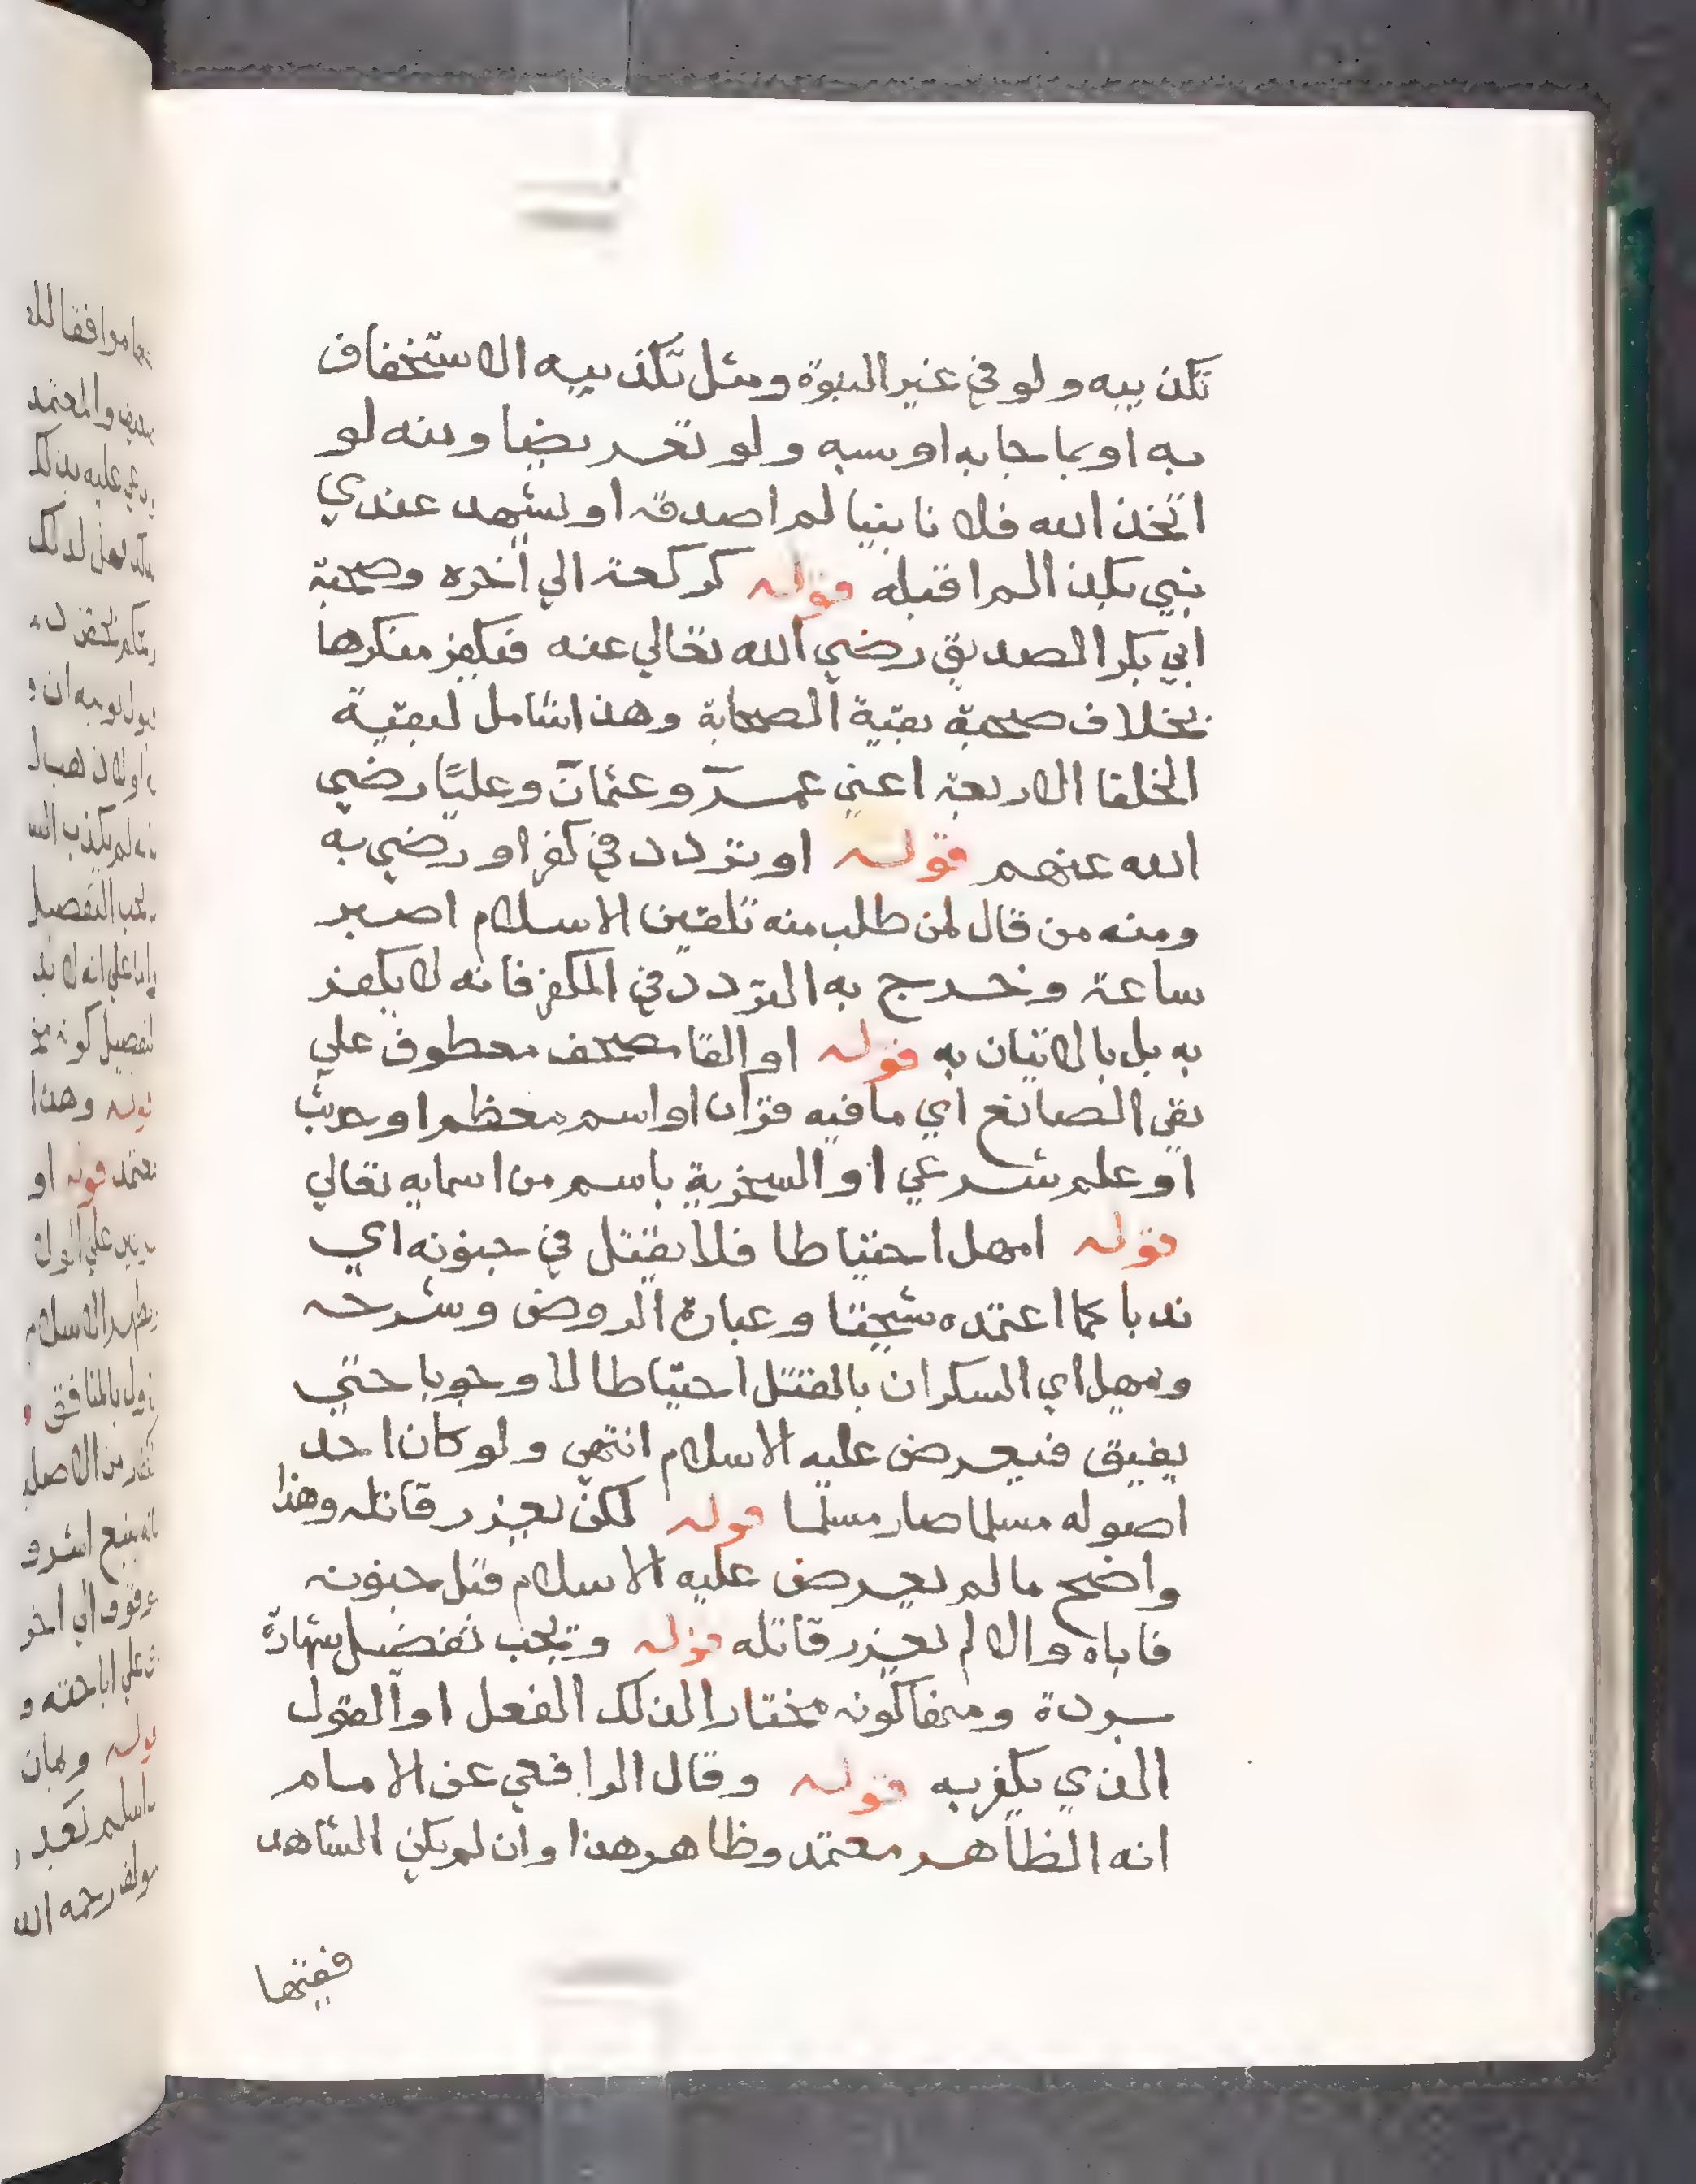 تكذيبه ولو في غير النبوة ومثل تكذيبه الاستخفاف
به او بما جا به او سبه ولو تعريضا ومنه لو
اتخذ الله فلانا نبيا لم اصدقه او لو شهد عندي
نبي بكذا لم اقبله قوله كركعة الي اخره وصحبة
ابي بكر الصديق رضي الله تعالي عنه فيكفر منكرها
بخلاف صحبة بقية الصحابة وهذا شامل لبقية
الخلفا الاربعة اعني عمر وعثمان وعليًا رضي
الله عنهم قوله او تردد في كفر او رضي به
ومنه من قال لمن طلب منه تلقين الاسلام اصبر
ساعة وخرج به التردد في المكفر فانه لا يكفر
به بل بالاتيان به قوله او القا مصحف معطوف علي
نفي الصانع اي ما فيه قران او اسم معظم او حديث
او علم شرعي او السخرية باسم من اسمايه تعالي
قوله امهل احتياطا فلا يقتل في جنونه اي
ندبا كما اعتمده شيخنا وعبارة الروض وشرحه
ويمهل اي السكران بالقتل احتياطا لا وجوبا حتي
يفيق فيعرض عليه الاسلام انتهي ولو كان احد
اصوله مسلما صار مسلما قوله لكن يعزر قاتله وهذا
واضح ما لم يعرض عليه الاسلام قبل جنونه
فاباه والا لم يعزر قاتله قوله ويجب تفضيل شهادة
بردة ومنها كونه مختارا لذلك الفعل او القول
الذي يكفر به قوله وقال الرافعي عن الامام
انه الظاهر معتمد وظاهر هذا وان لم يكن الشاهد
فقيها